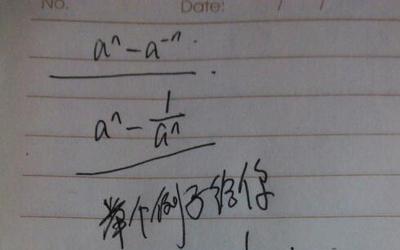 No. Date: / /
aⁿ-a⁻ⁿ
aⁿ-1/aⁿ
举个例子给你